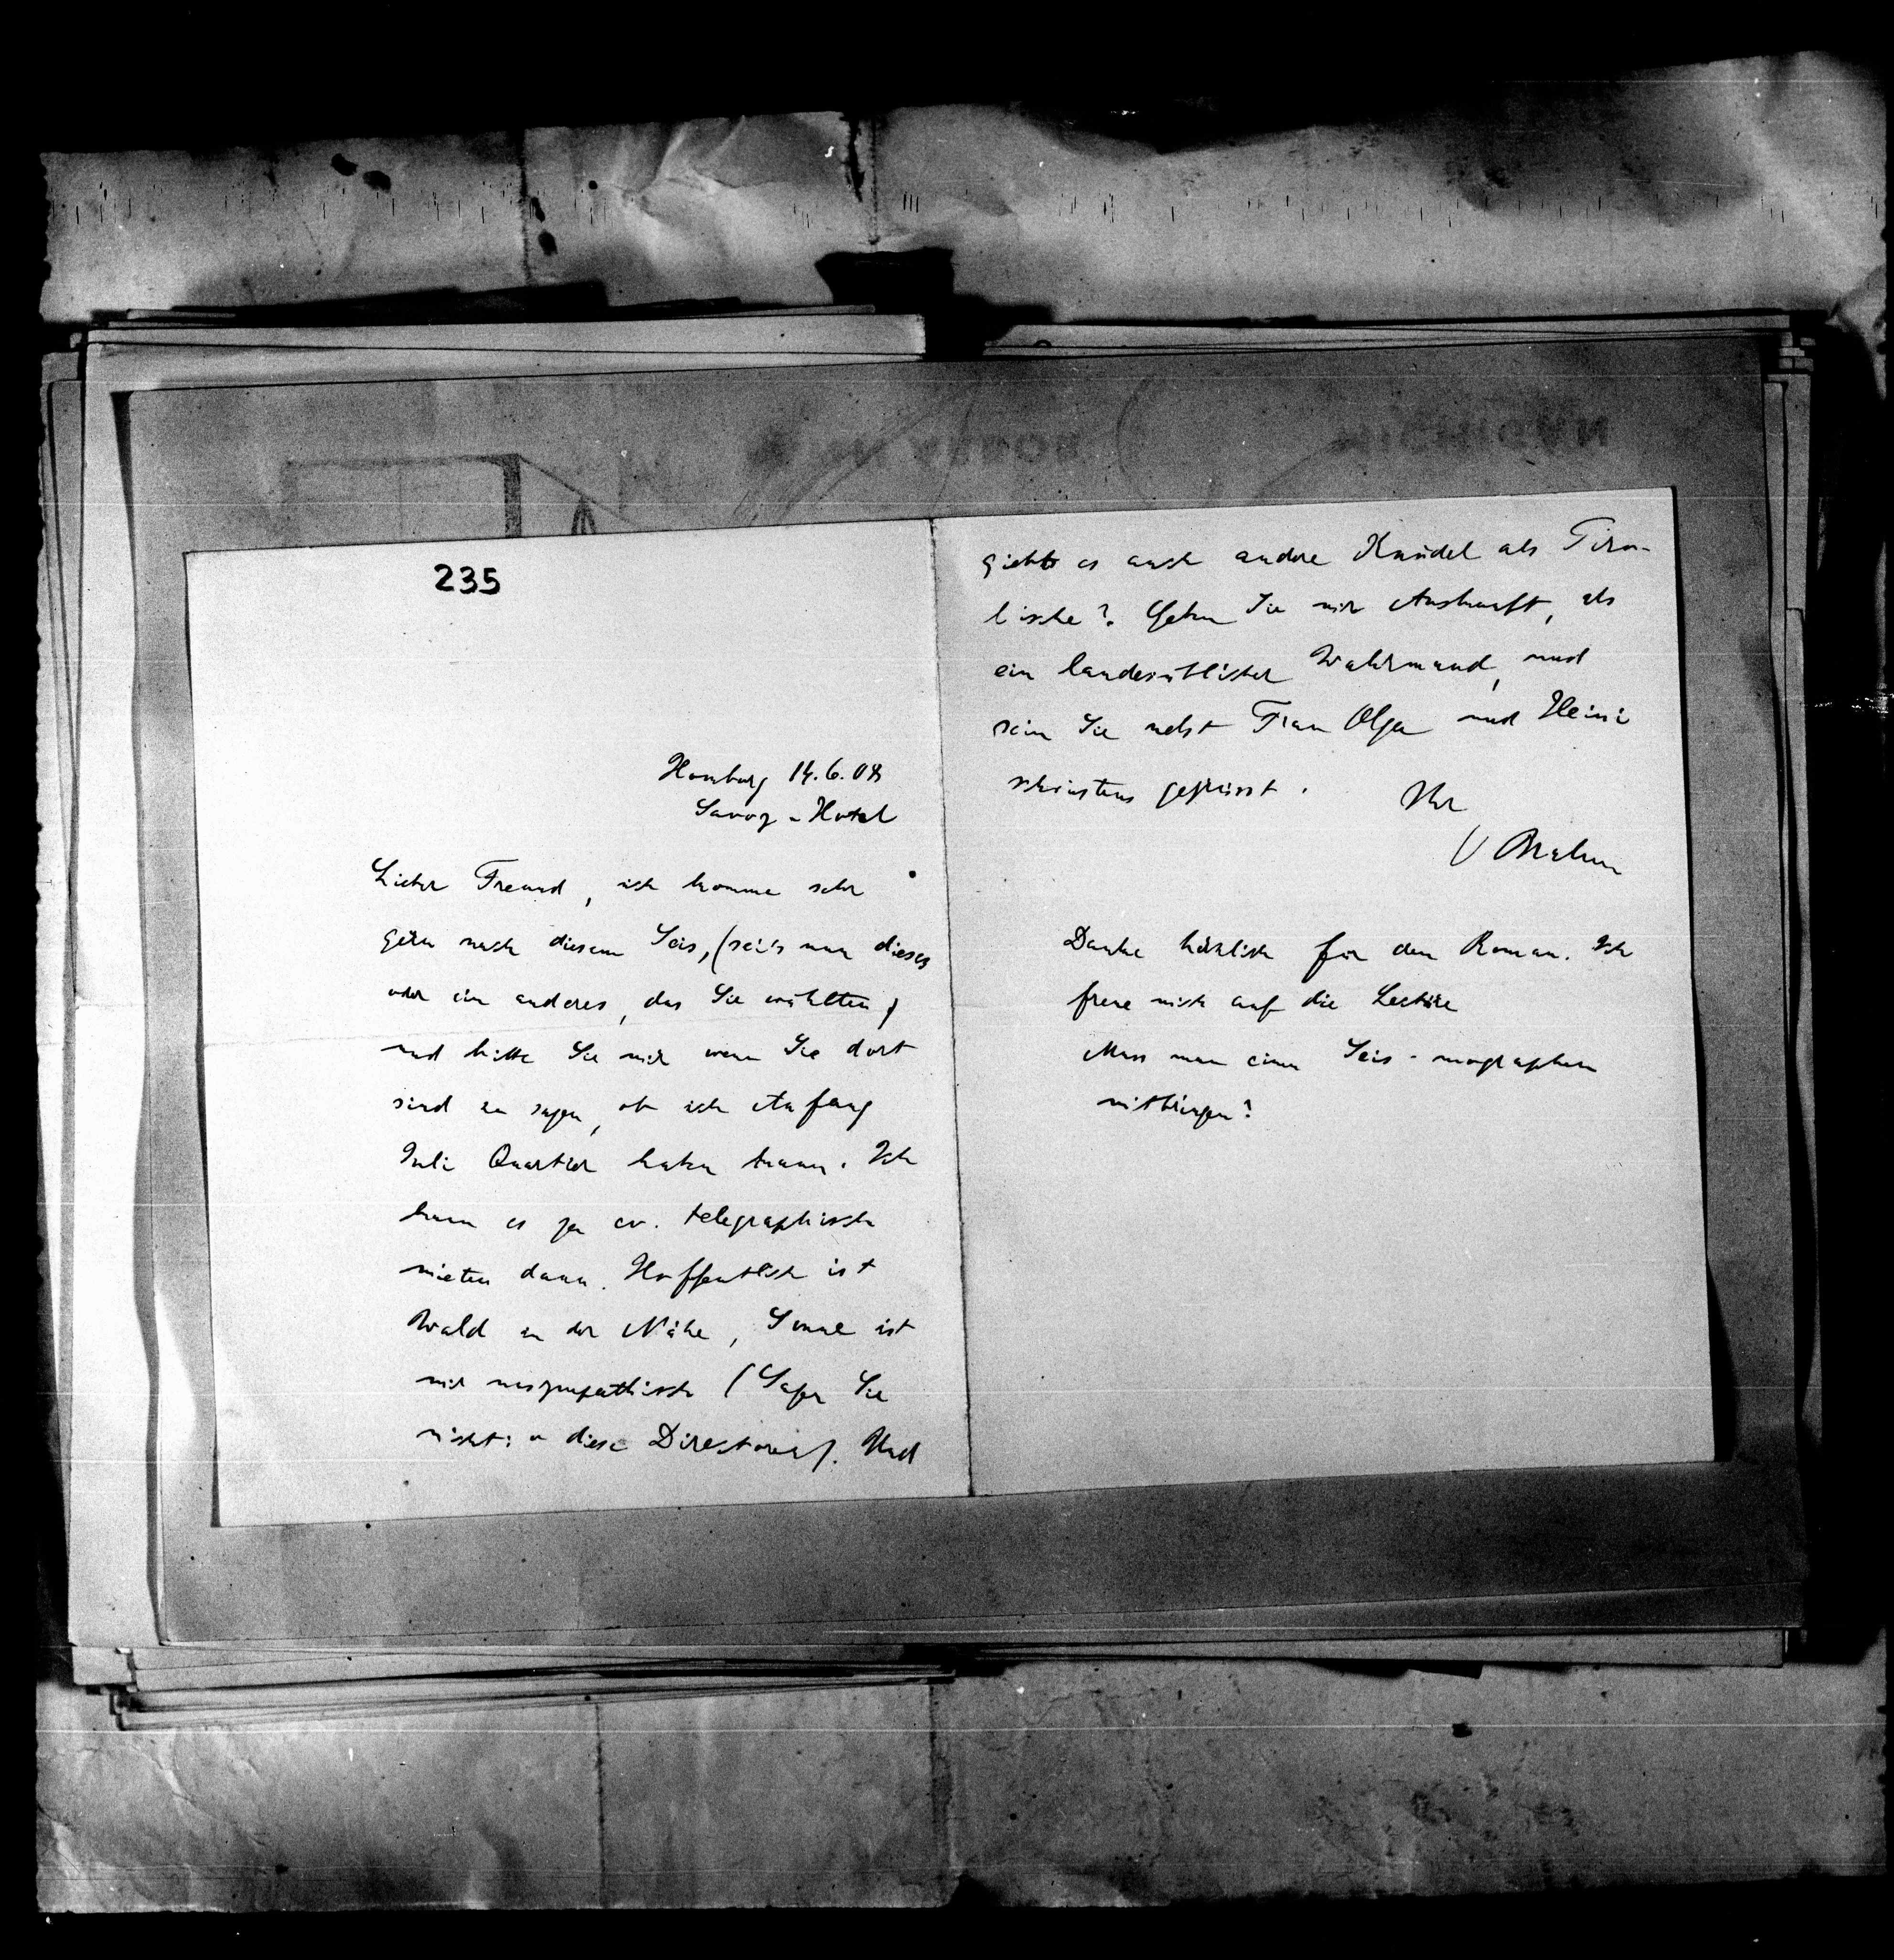 235
Homburg 14.6.08
Savoy-Hotel
Lieber Freund, ich komme sehr
gern nach diesem Seis, (sei's nun dieses
oder ein anderes, das Sie wählten)
und bitte Sie mir wenn Sie dort
sind zu sagen, ob ich Anfang
Juli Quartier haben kann. Ich
kann es ja ev. telegraphisch
mieten dann. Hoffentlich ist
Wald in der Nähe, Sonne ist
mir unsympathisch (Sagen Sie
nicht: o diese Directoren). Und
giebt es auch andere Knödel als Tiro-
lische? Geben Sie mir Auskunft, als
ein landesüblicher Wahrmund, und
sein Sie nebst Frau Olga und Heini
schönstens gegrüsst.
Ihr
Brahm
Danke herzlich für den Roman. Ich
freue mich auf die Lectüre
Muss man einen Seis-mographen
mitbringen?